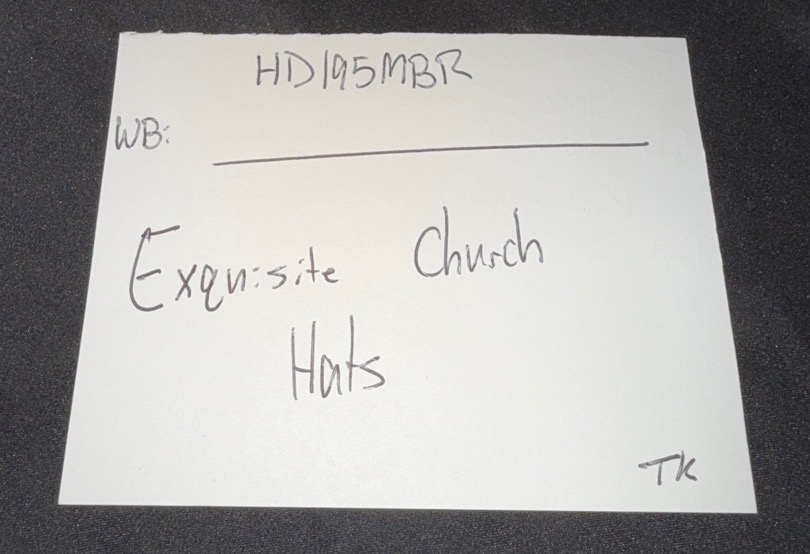 HD195MBR
WB:
Exquisite Church
Hats
TK